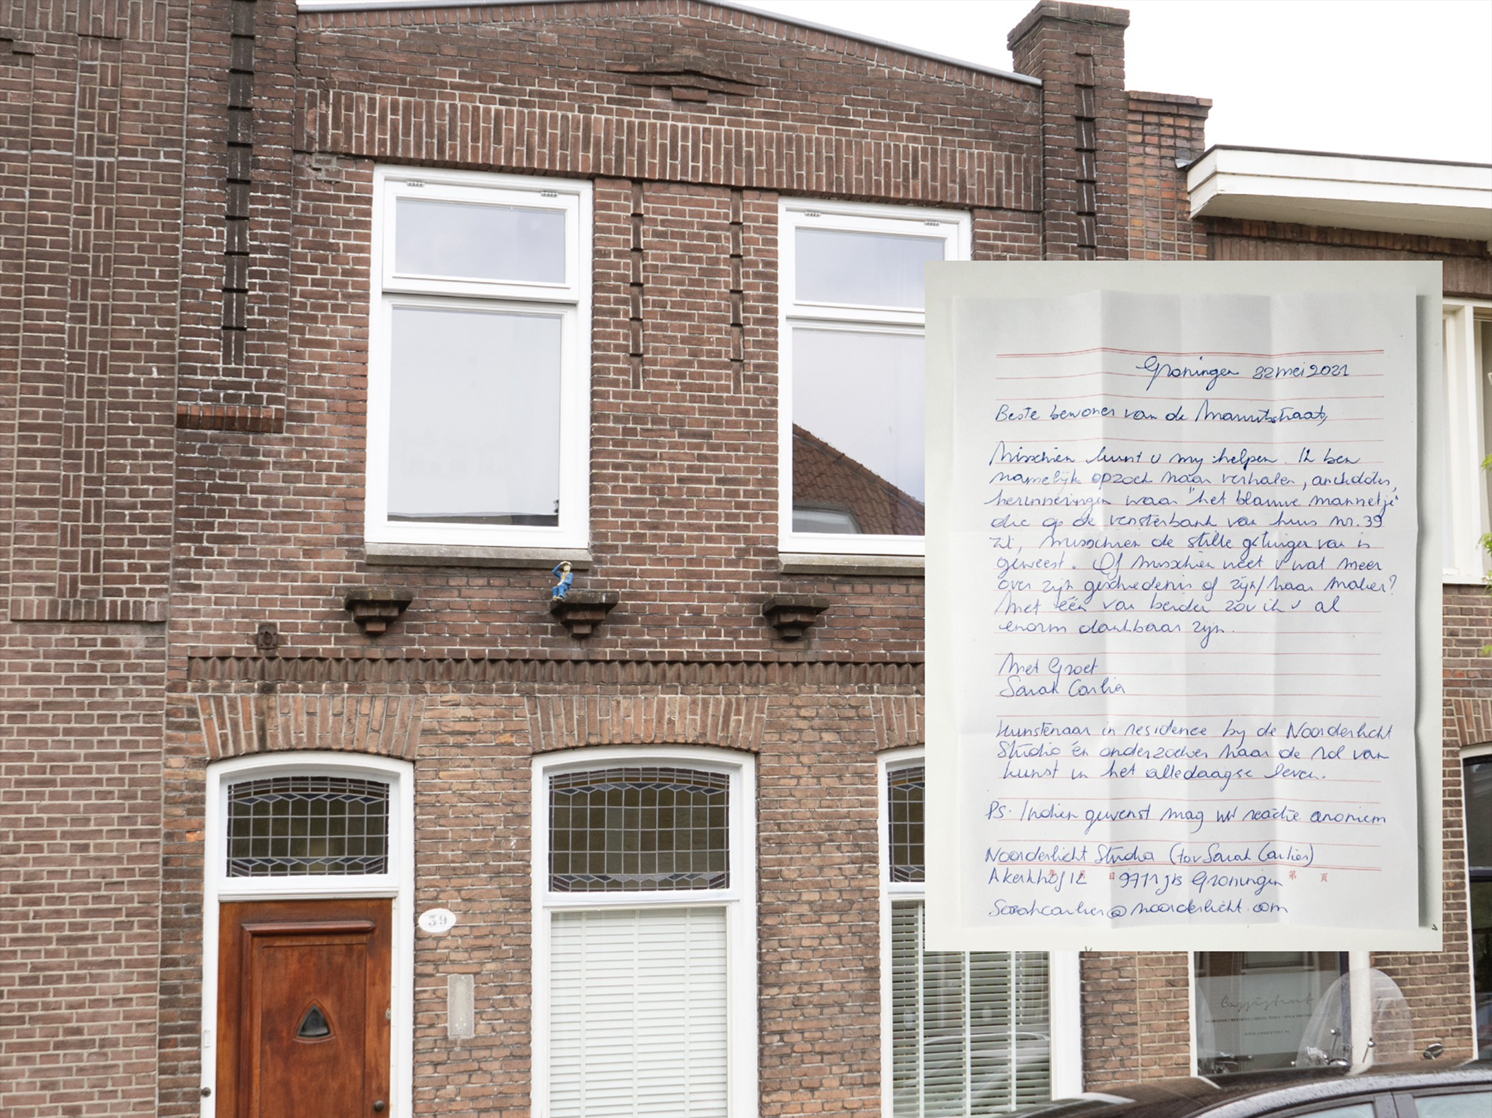 39
Groningen 22 mei 2021
Beste bewoner van de Mauritsstraat,
Misschien kunt u mij helpen. Ik ben
namelijk opzoek naar verhalen, anekdotes,
herinneringen waar "het blauwe mannetje"
die op de vensterbank van huis nr. 39
zit, misschien de stille getuige van is
geweest. Of misschien weet u wat meer
over zijn geschiedenis of zijn/haar maker?
Met één van beiden zou ik u al
enorm dankbaar zijn.
Met Groet
Sarah Carlier
Kunstenaar in residence bij de Noorderlicht
Studio en onderzoeker naar de rol van
kunst in het alledaagse leven.
Ps. Indien gewenst mag uw reactie anoniem
Noorderlicht Studio (tav Sarah Carlier)
Akerkhof 12 9711 JB Groningen
Sarahcarlier@noorderlicht.com